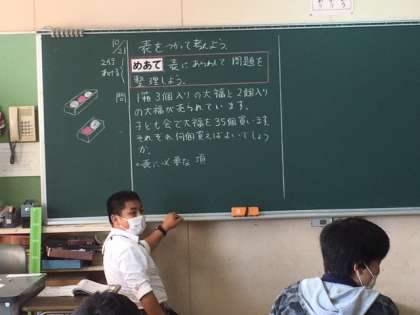 10/21
表をつかって考えよう。
2行
あける
めあて 表にあらわして 問題を
整理しよう。
問
1箱3個入りの大福と2個入り
の大福が売られています。
子ども会で大福を35個買います。
それぞれ何個買えばよいでしょう
か。
・表に必要な 項